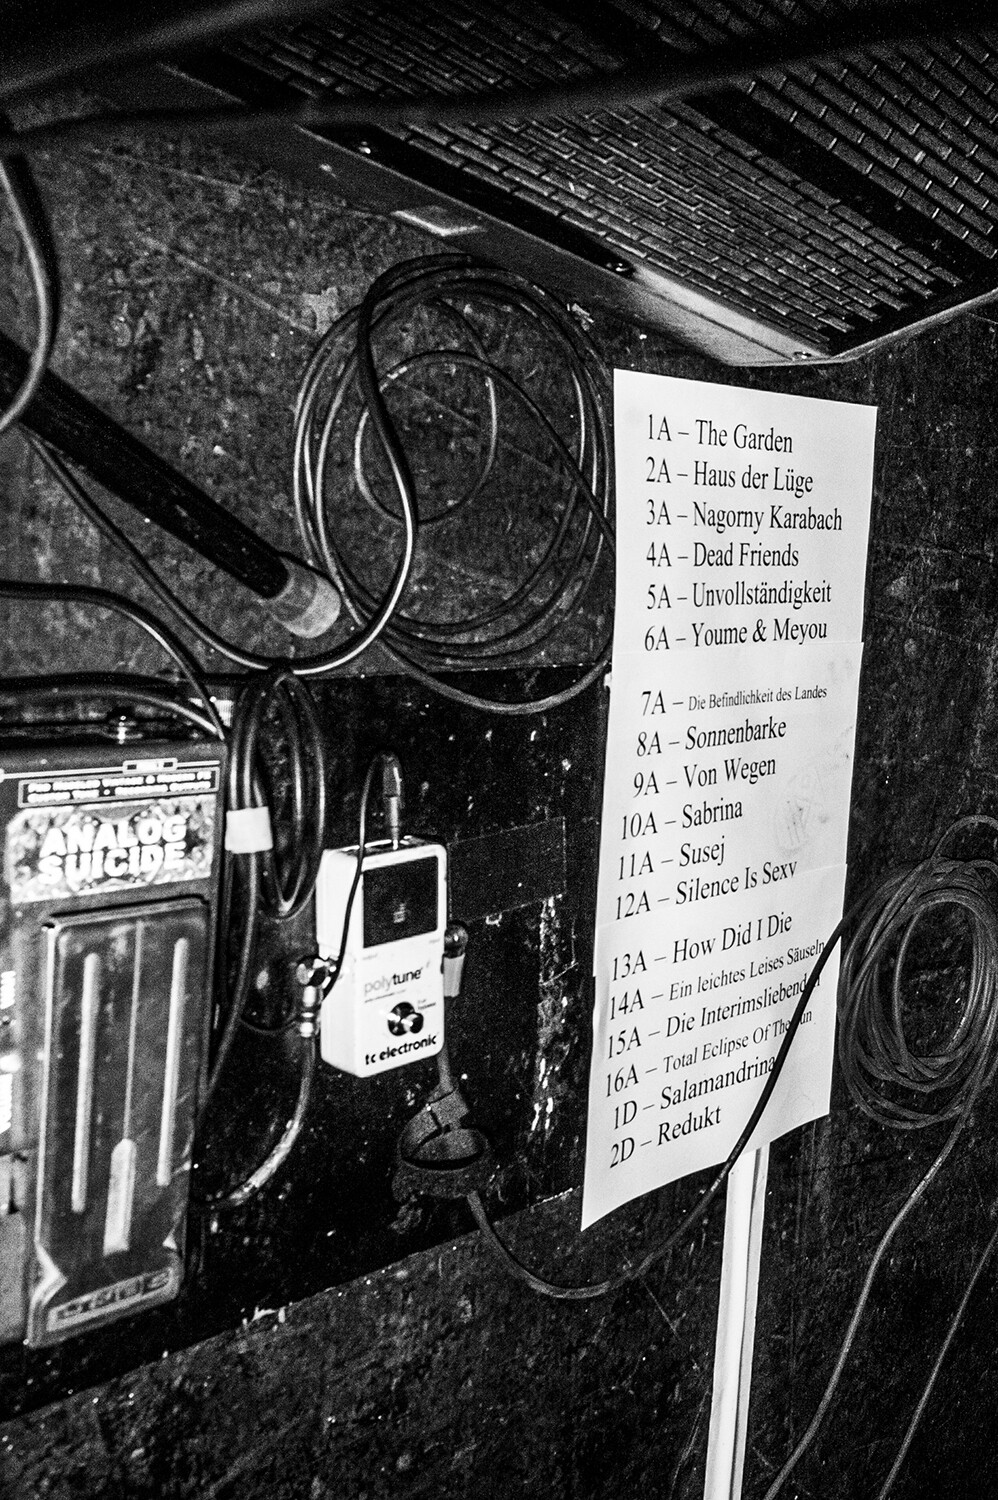 ANALOG
SUICIDE
polytune
tc electronic
1A – The Garden
2A – Haus der Lüge
3A – Nagorny Karabach
4A – Dead Friends
5A – Unvollständigkeit
6A – Youme & Meyou
7A – Die Befindlichkeit des Landes
8A – Sonnenbarke
9A – Von Wegen
10A – Sabrina
11A – Susej
12A – Silence Is Sexy
13A – How Did I Die
14A – Ein leichtes Leises Säuseln
15A – Die
16A – Total Eclipse Of
1D – Salamandrina
2D – Redukt